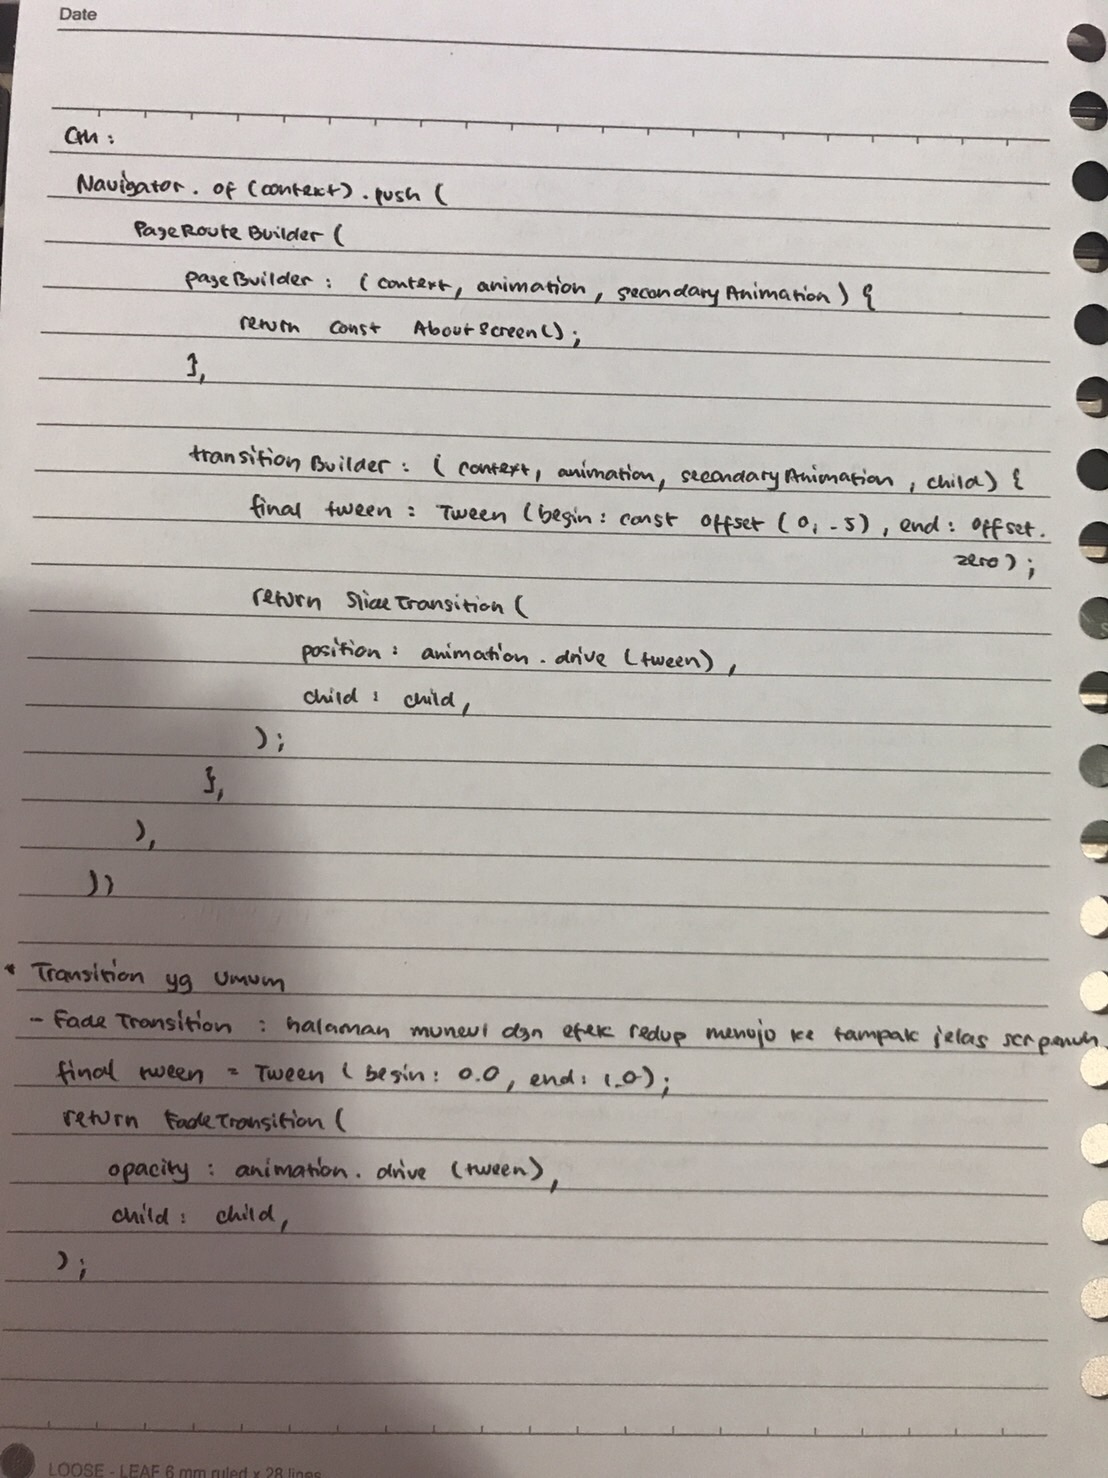 Date
Cth :
Navigator. of (context). push (
PageRoute Builder (
pageBuilder : (context, animation, secondaryAnimation) {
return const AboutScreen();
},
transition Builder : (context, animation, secondaryAnimation, child) {
final tween : Tween (begin: const Offset (0, -5), end: Offset.
zero);
return SlideTransition (
position : animation. drive (tween),
child : child,
);
},
),
))
* Transition yg umum
- Fade Transition : halaman muncul dgn efek redup menuju ke tampak jelas scr penuh
final tween = Tween (begin: 0.0, end: 1.0);
return FadeTransition (
opacity : animation. drive (tween),
child : child,
);
LOOSE - LEAF 6 mm ruled x 28 lines